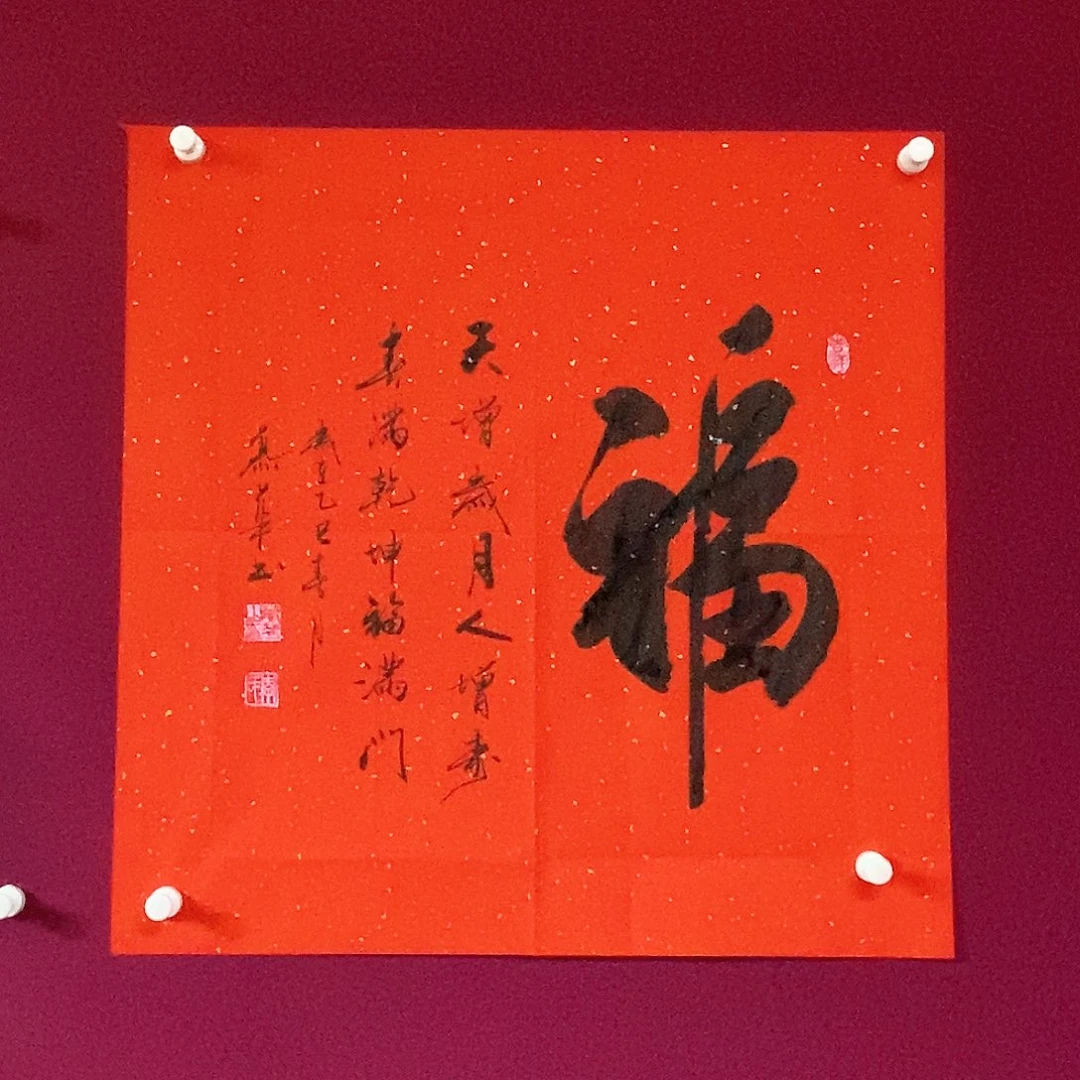 福
天增歲月人增寿
春滿乾坤福滿门
歲在乙巳春月
书